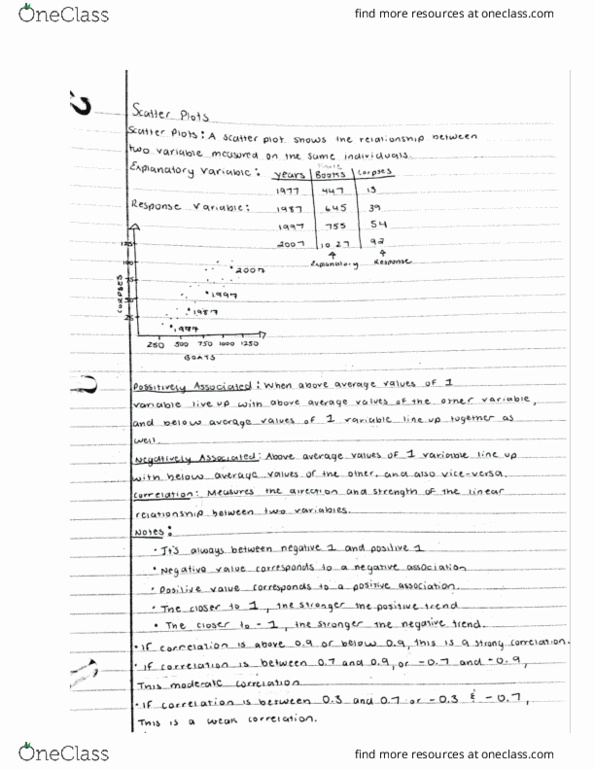 OneClass
find more resources at oneclass.com
Scatter Plots
Scatter Plots: A scatter plot shows the relationship between
two variable measured on the same individuals.
Explanatory Variable: years Books Corpses
1977 447 13
Response Variable: 1987 645 39
1997 755 54
2007 1027 92
Explanatory Response
CORPSES
125
100
75
50
25
2007
1997
1987
1977
250 500 750 1000 1250
BOATS
Possitively Associated: When above average values of 1
variable live up with above average values of the other variable,
and below average values of 1 variable line up together as
well.
Negatively Associated: Above average values of 1 variable line up
with below average values of the other, and also vice-versa.
Correlation: Measures the direction and strength of the linear
relationship between two variables.
Notes:
• It's always between negative 1 and positive 1
• Negative value corresponds to a negative association
• Positive value corresponds to a positive association.
• The closer to 1, the stronger the positive trend
• The closer to -1, the stronger the negative trend.
• If correlation is above 0.9 or below 0.9, this is a strong correlation.
• If correlation is between 0.7 and 0.9, or -0.7 and -0.9,
This moderate correlation
• If correlation is between 0.3 and 0.7 or -0.3 & -0.7,
This is a weak correlation.
OneClass
find more resources at oneclass.com